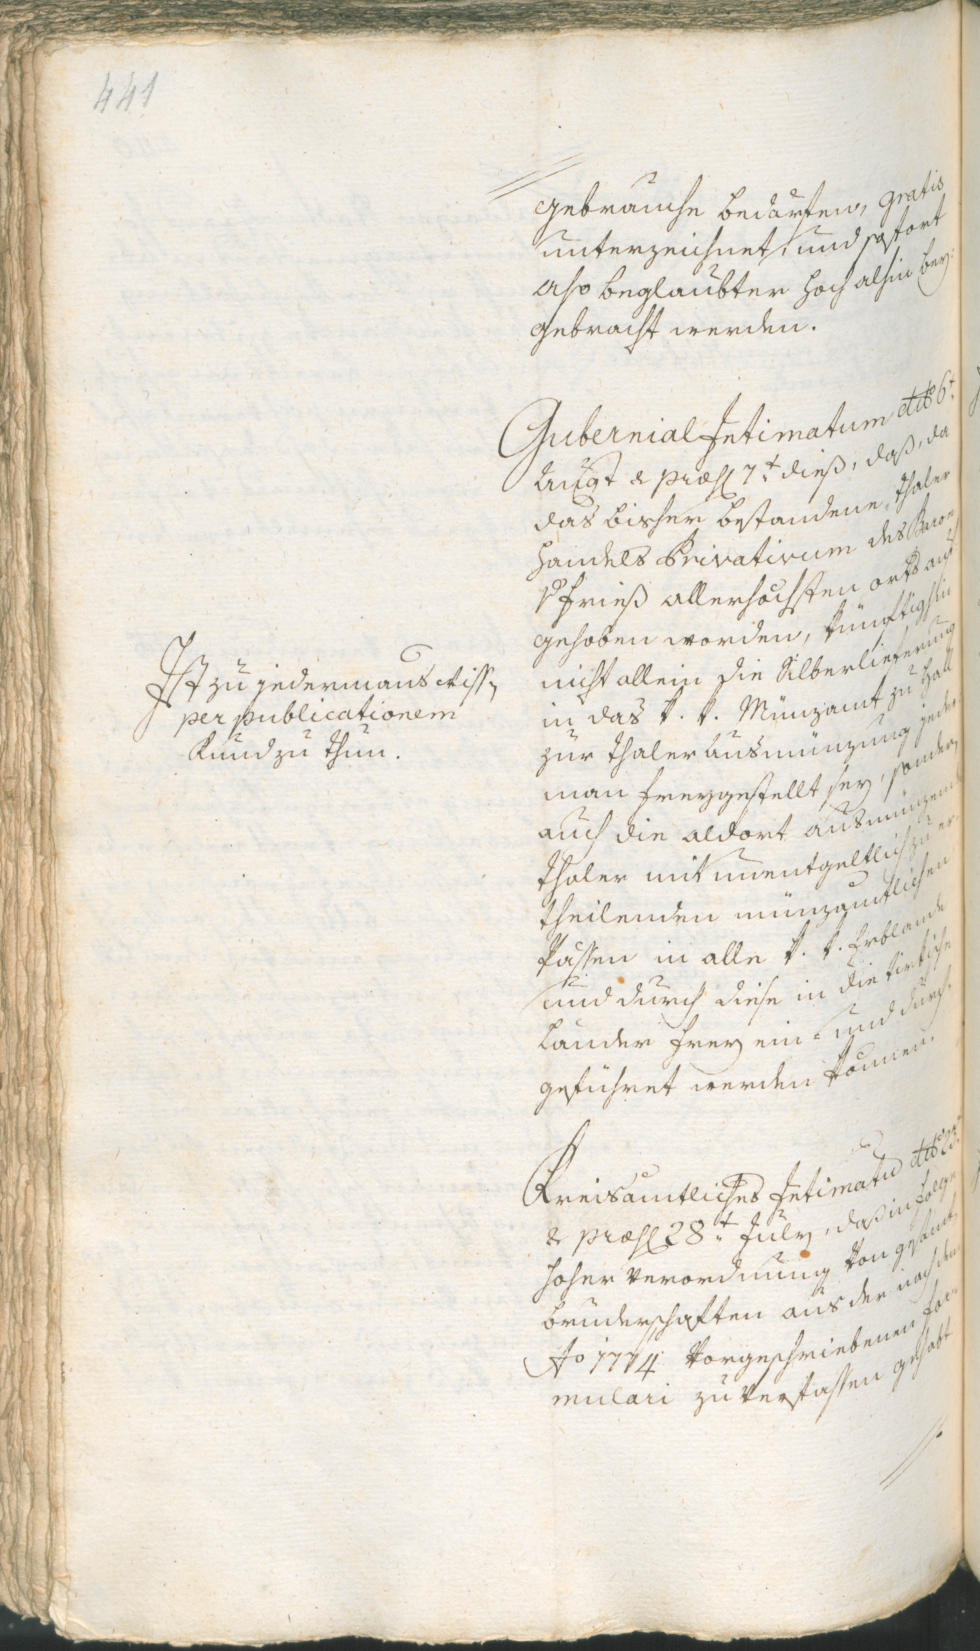 441
gebrauche bedürften, gratis
unterzeichnet, und sofort
also beglaubter hoch alhin bey-
gebracht werden.
Gubernial Intimatum dtto 6t
Augt & præs 7t dieß, daß, da
das bisher bestandene Thaler
Handels Privativum des Baron
v Frieß allerhöchsten orts auf
gehoben worden, künftighin
nicht allein die Silberlieferung
in das k. k. Münzamt zu Hall
zur Thaler Ausmünzung jeder
man freygestellt sey, sondern
auch die aldort ausmünzende
Thaler mit unentgeltlich zu er-
theilenden münzamtlichen
Pässen in alle k. k. Erblande
und durch diese in die türkische
Länder frey ein- und durch-
geführet werden können.
Ist zu jedermans Wiss
per publicationem
Kund zu thun.
Kreisamtliches Intimatu dtto 23t
& præs 28t July, daß in Folge
hoher Verordnung von gesamt
bruderschaften aus der nach dem
Ao 1774 vorgeschriebenen For-
mulari zu verfassen gehabt